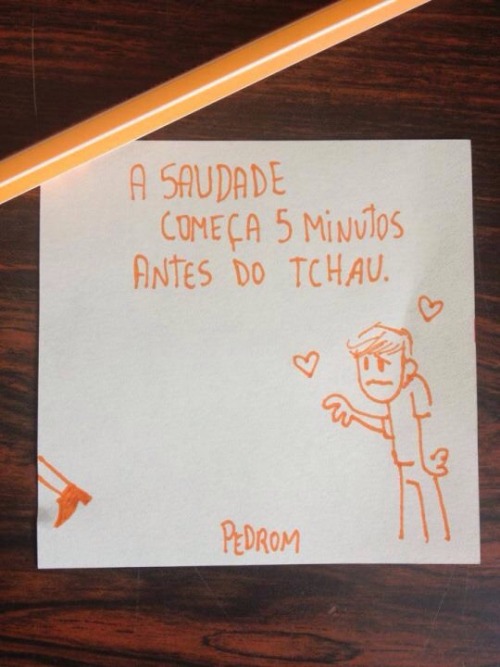 A SAUDADE
COMEÇA 5 MINUTOS
ANTES DO TCHAU.
PEDROM